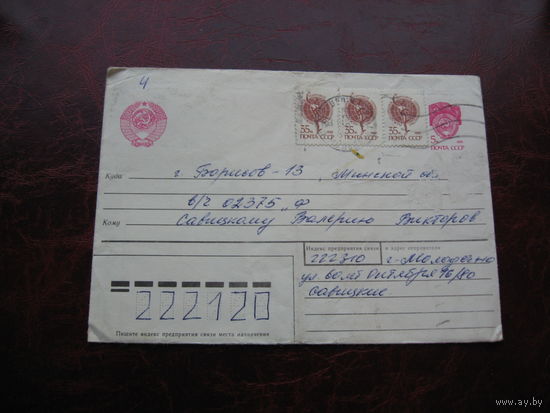 4
35к 35к 35к 5к
ПОЧТА СССР ПОЧТА СССР ПОЧТА СССР ПОЧТА СССР
Куда г. Борисов-13, Минской обл.
в/ч 02375 "Ф"
Кому Савицкому Валерию Викторов
Индекс предприятия связи и адрес отправителя
222310 г. Молодечно
ул.
Савицкие
222120
Пишите индекс предприятия связи места назначения
www.ay.by